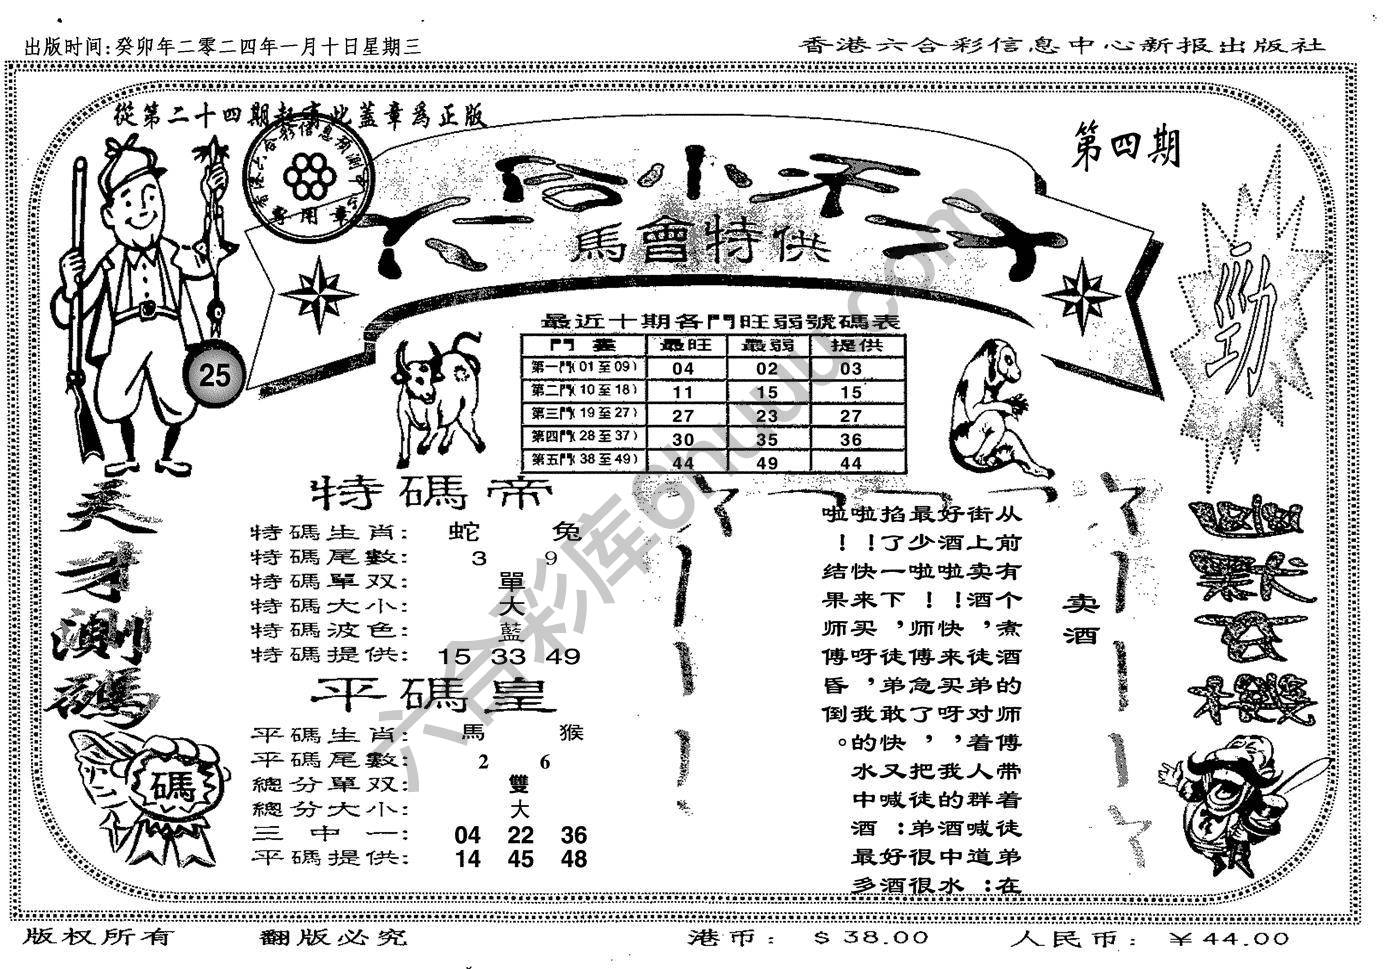 出版时间:癸卯年二零二四年一月十日星期三
香港六合彩信息中心新报出版社
從第二十四期起有此蓋章為正版
香港六合彩信息預測中心
專用章
第四期
六合小子
馬會特供
勁
25
最近十期各門旺弱號碼表
門 數 最旺 最弱 提供
第一門(01至09) 04 02 03
第二門(10至18) 11 15 15
第三門(19至27) 27 23 27
第四門(28至37) 30 35 36
第五門(38至49) 44 49 44
天才測碼
碼
特碼帝
特碼生肖: 蛇 兔
特碼尾數: 3 9
特碼單双: 單
特碼大小: 大
特碼波色: 藍
特碼提供: 15 33 49
平碼皇
平碼生肖: 馬 猴
平碼尾數: 2 6
總分單双: 雙
總分大小: 大
三中一: 04 22 36
平碼提供: 14 45 48
卖酒
从前有个煮酒的师傅带着徒弟在
街上卖酒，徒弟对着人群喊道：
好酒啦！快来买呀，我的酒中水
最少啦！师傅急了，把徒弟很很
掐了一下，徒弟敢快又喊：好酒
啦！快来买呀，我的水中酒最多
啦！结果师傅昏倒。
六合彩库6huu.com
版权所有
翻版必究
港币: $38.00
人民币: ￥44.00